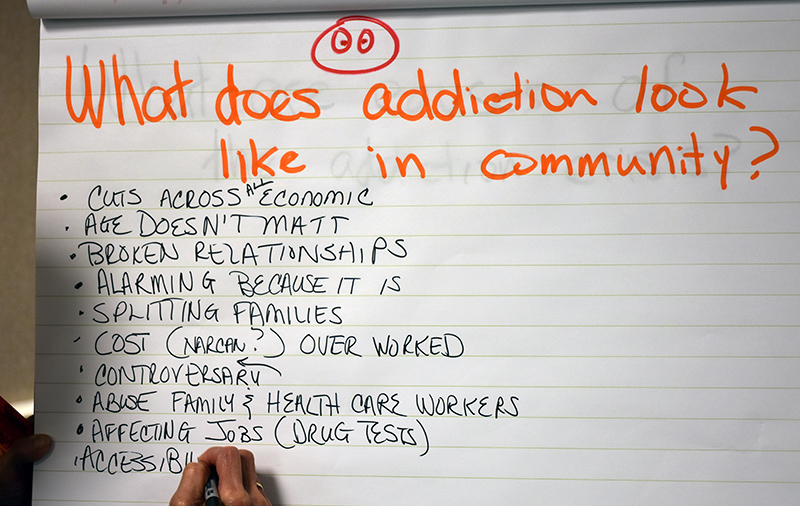 What does addiction look
like in community?
• CUTS ACROSS ALL ECONOMIC
• AGE DOESN'T MATT
• BROKEN RELATIONSHIPS
• ALARMING BECAUSE IT IS
• SPLITTING FAMILIES
• COST (NARCAN?) OVER WORKED
• CONTROVERSARY
• ABUSE FAMILY & HEALTH CARE WORKERS
• AFFECTING JOBS (DRUG TESTS)
• ACCESSIBI